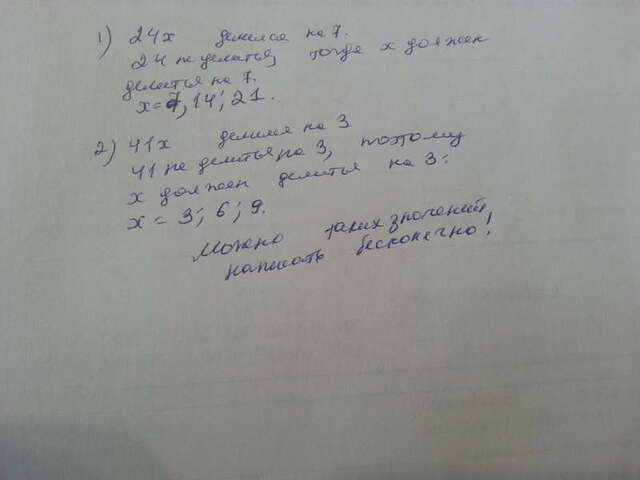 1) 24x делился на 7.
24 не делится, тогда x должен
делиться на 7.
x=7, 14; 21.
2) 41x делился на 3
41 не делится на 3, поэтому
x должен делиться на 3:
x = 3; 6; 9.
Можно таких значений
написать бесконечно!